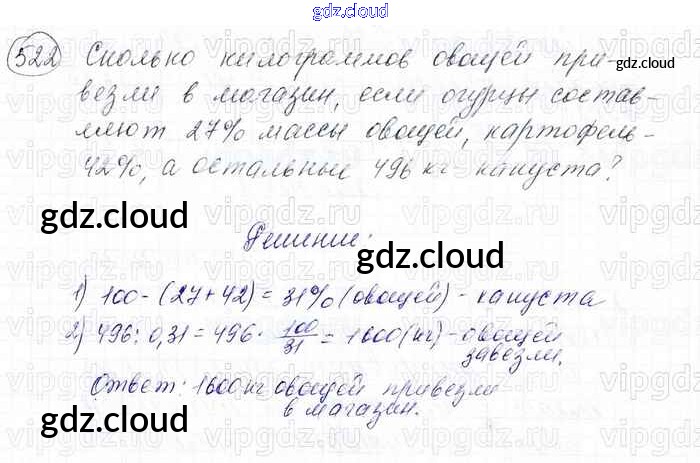 gdz.cloud
522 Сколько килограммов овощей при-
gdz.cloud
везли в магазин, если огурцы состав-
ляют 27% массы овощей, картофель -
42%, а остальные 496 кг капуста?
gdz.cloud
Решение:
gdz.cloud
1) 100 - (27+42) = 31% (овощей) - капуста
2) 496 : 0,31 = 496 · 100/31 = 1600 (кг) - овощей
завезли.
Ответ: 1600 кг овощей привезли
в магазин.
gdz.cloud
gdz.cloud